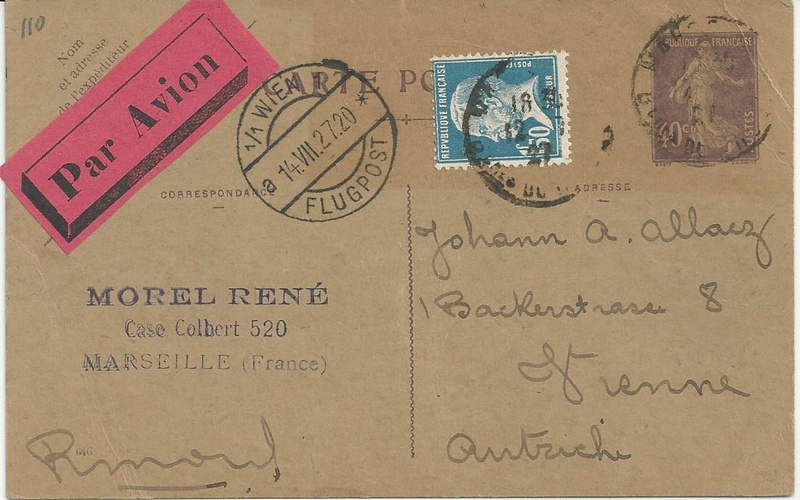 110
Nom
et adresse
de l'expéditeur
Par Avion
CARTE PO
CORRESPONDANCE
ADRESSE
1/1 WIEN 1
a 14.VII.27.20 *
FLUGPOST
REPUBLIQUE FRANÇAISE
POSTES
REPUBLIQUE FRANÇAISE
40 c
POSTES
18
12
27
MOREL RENÉ
Case Colbert 520
MARSEILLE (France)
646
Johann A. Allacz
Backerstrasse 8
Vienne
Autriche